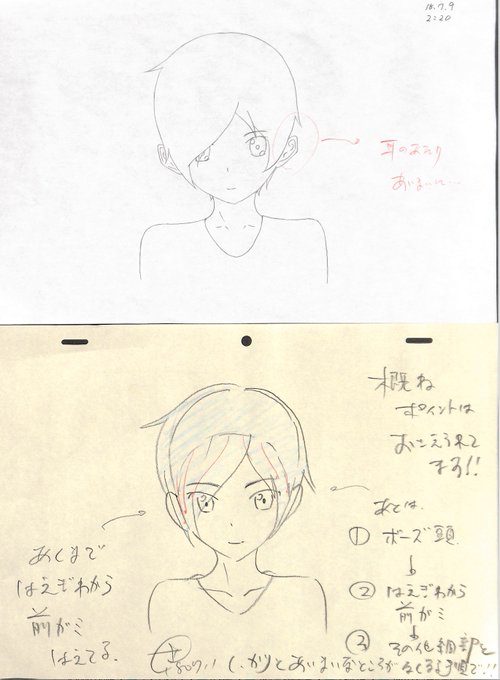 18.7.9
2:20
耳のあたり
あいまいに…
概ね
ポイントは
おさえられて
ます!!
あとは、
① ボーズ頭
↓
② はえぎわから
前ガミ
↓
③ その他細部と
しっかりとあいまいなところがなくなる手順で!!
あくまで
はえぎわから
前ガミ
はえてる。